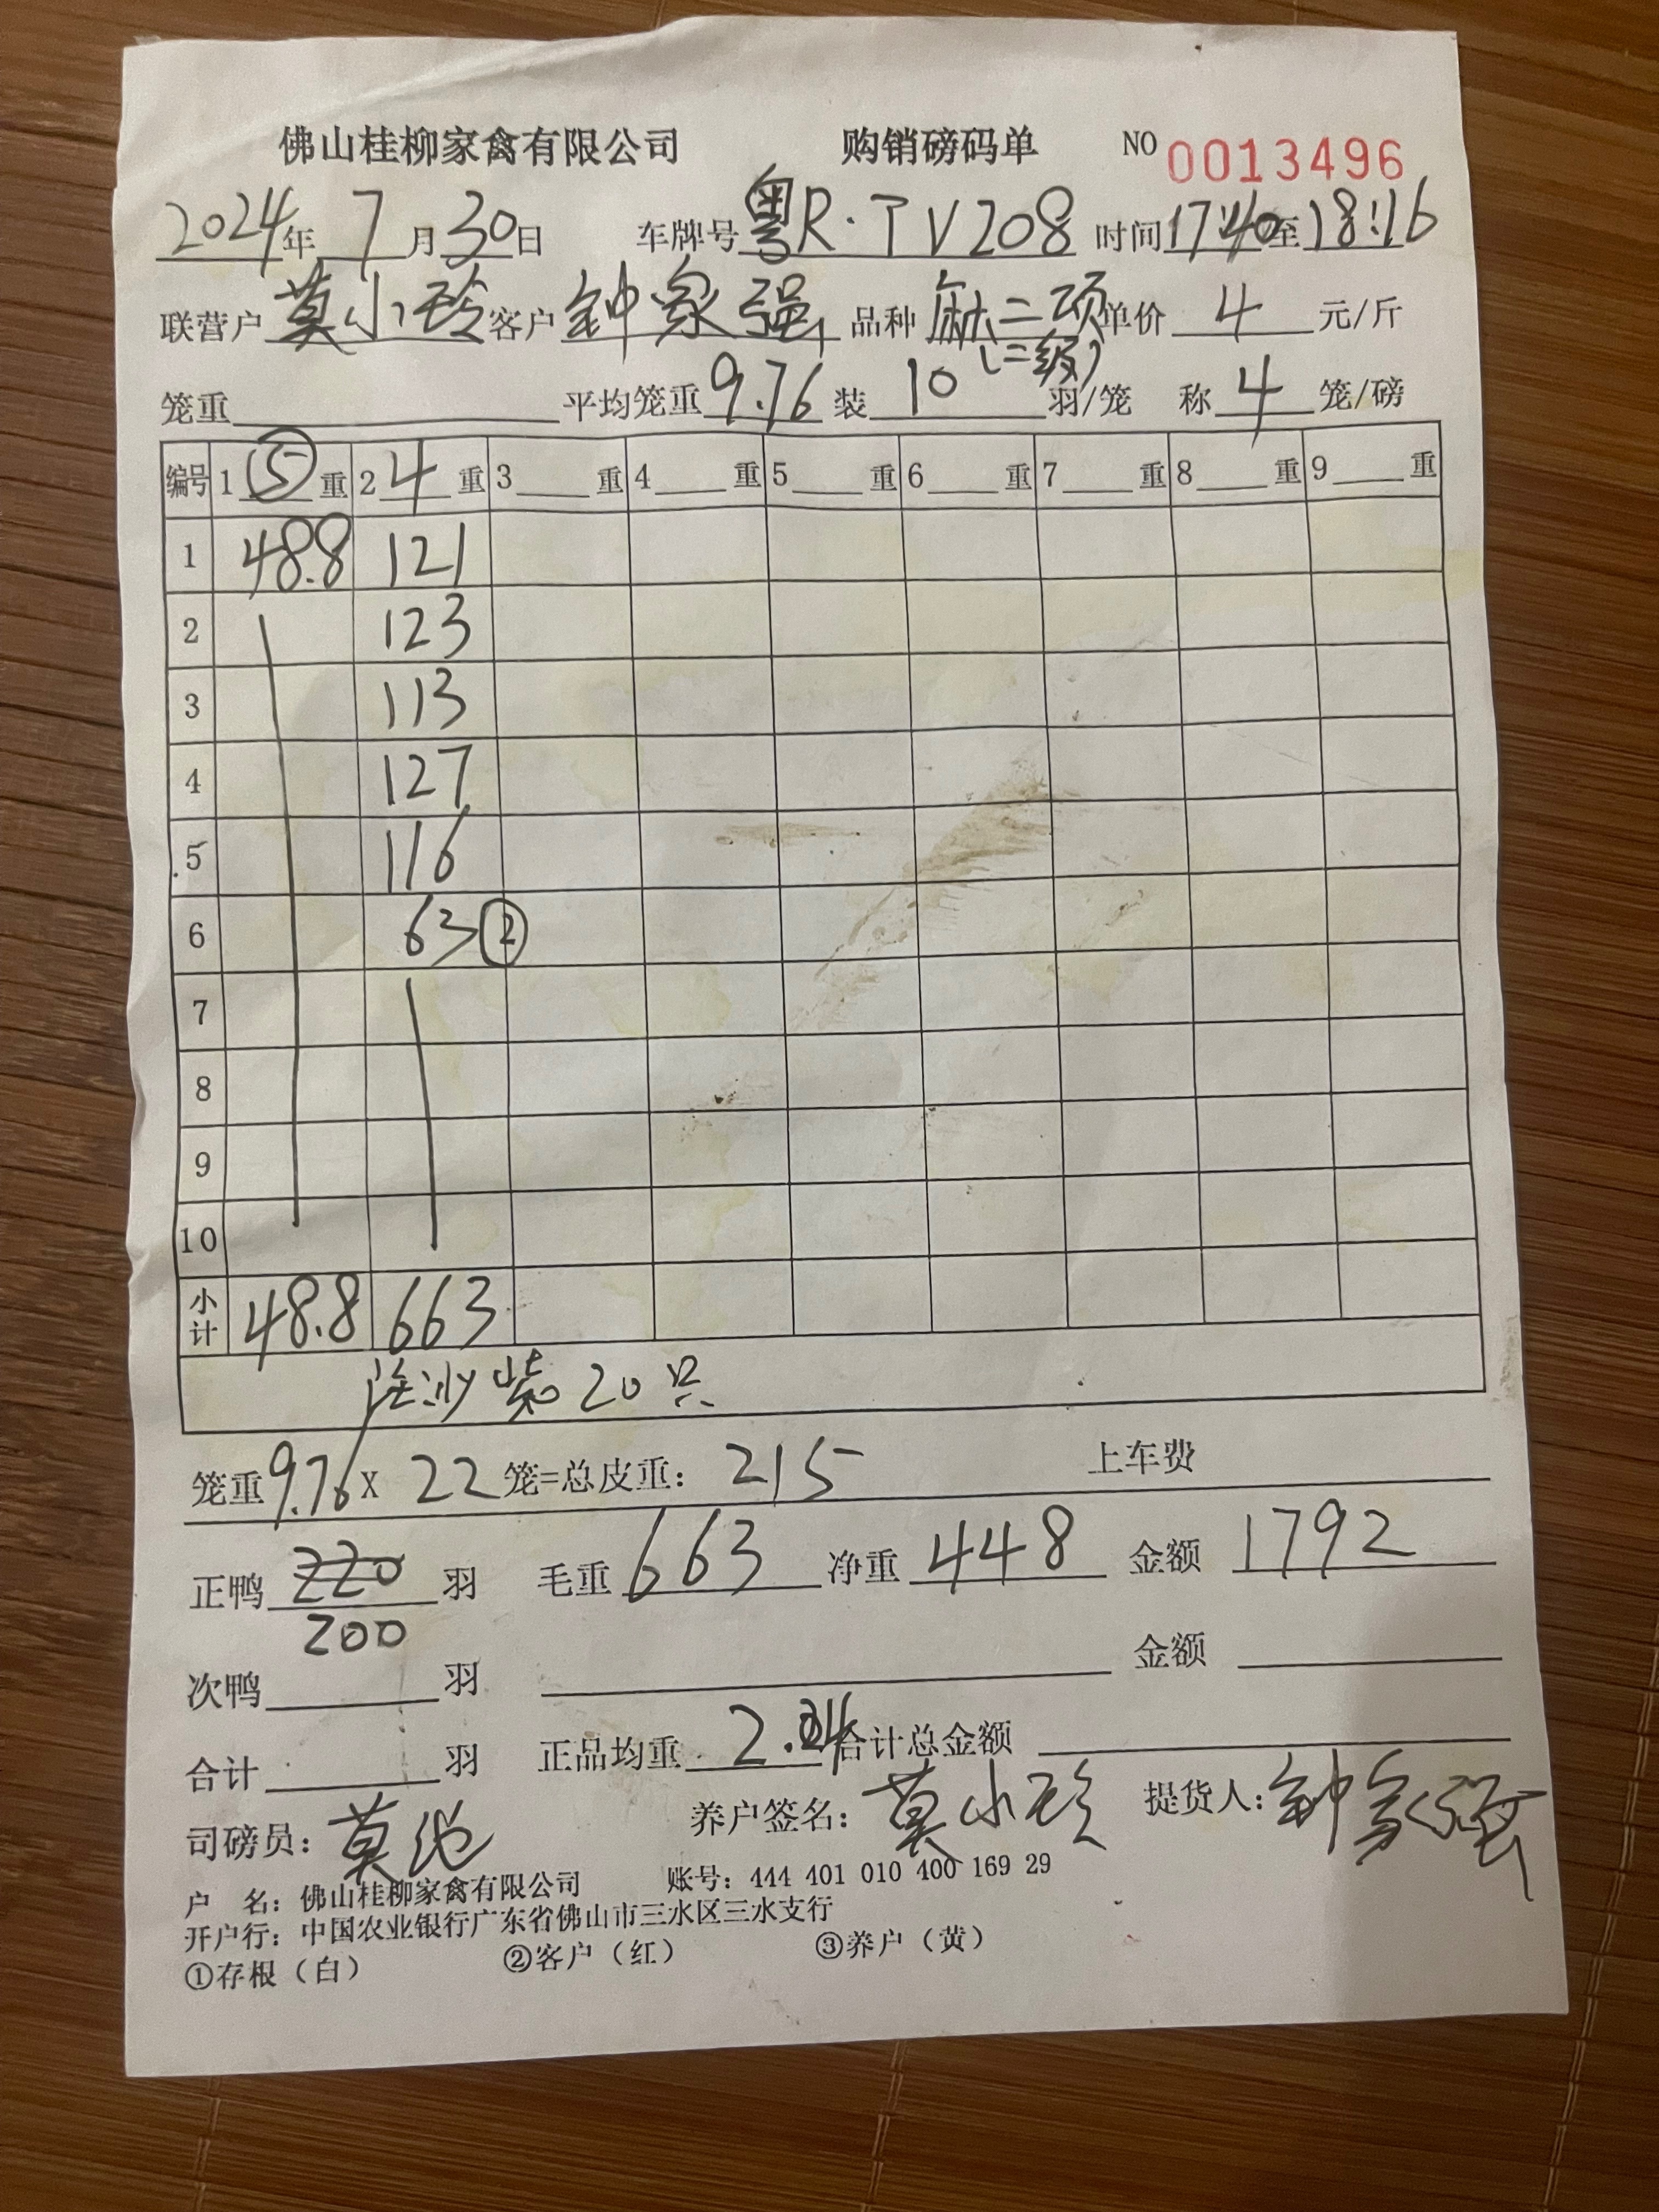 佛山桂柳家禽有限公司 购销磅码单 NO 0013496
2024年 7月30日 车牌号 粤R·TV208 时间 17:40至18:16
联营户 莫小玲 客户 钟家强 品种 麻二项 单价 4 元/斤
(二级)
笼重 平均笼重 9.76 装 10 羽/笼 称 4 笼/磅
编号 1 ⑤ 重 2 4 重 3 重 4 重 5 重 6 重 7 重 8 重 9 重
1 48.8 121
2 123
3 113
4 127
5 116
6 63 ②
7
8
9
10
小计 48.8 663
沙 紫 20只
笼重 9.76 X 22 笼=总皮重: 215 上车费
正鸭 220 羽 毛重 663 净重 448 金额 1792
200
次鸭 羽 金额
合计 羽 正品均重 2.24 合计总金额
司磅员: 莫 养户签名: 莫小玲 提货人: 钟家强
户 名: 佛山桂柳家禽有限公司 账号: 444 401 010 400 169 29
开户行: 中国农业银行广东省佛山市三水区三水支行
①存根(白) ②客户(红) ③养户(黄)